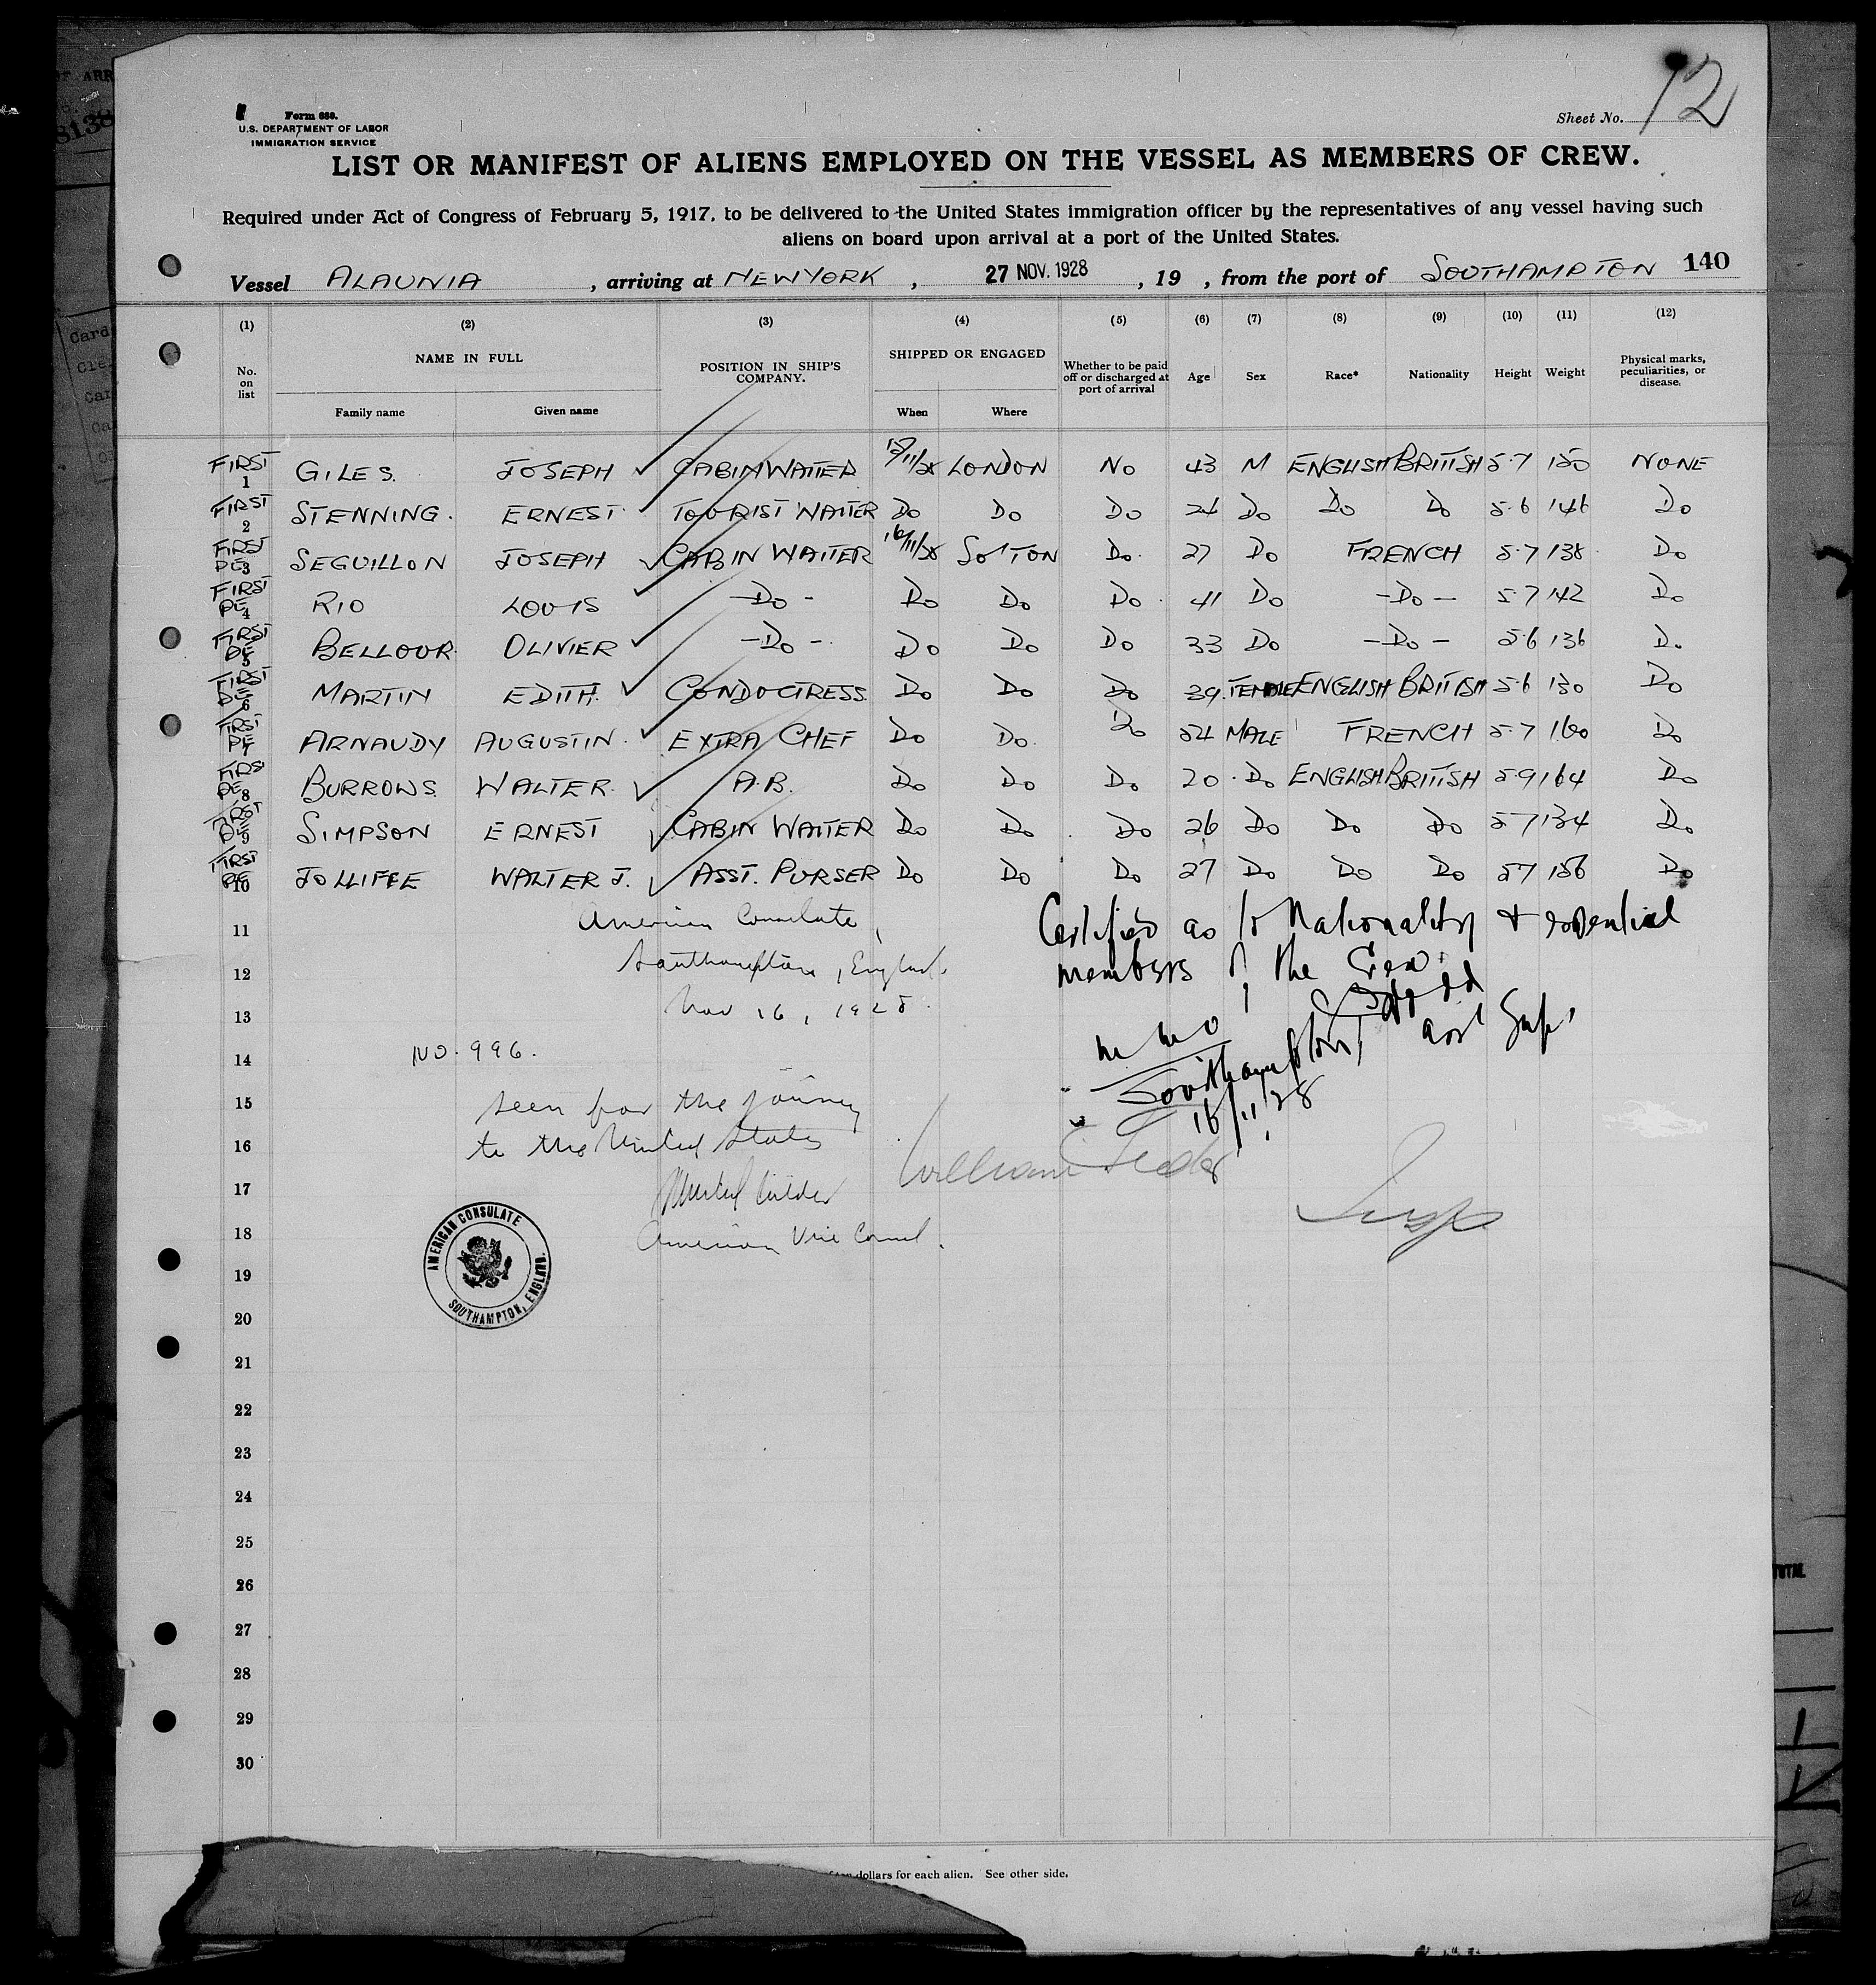 Form 680.
U.S. DEPARTMENT OF LABOR
IMMIGRATION SERVICE
Sheet No. 12
LIST OR MANIFEST OF ALIENS EMPLOYED ON THE VESSEL AS MEMBERS OF CREW.
Required under Act of Congress of February 5, 1917, to be delivered to the United States immigration officer by the representatives of any vessel having such
aliens on board upon arrival at a port of the United States.
Vessel ALAUNIA, arriving at NEW YORK, 27 NOV. 1928, 19 , from the port of SOUTHAMPTON 140
(1) (2) (3) (4) (5) (6) (7) (8) (9) (10) (11) (12)
No. on list NAME IN FULL POSITION IN SHIP'S COMPANY. SHIPPED OR ENGAGED Whether to be paid off or discharged at port of arrival Age Sex Race* Nationality Height Weight Physical marks, peculiarities, or disease.
Family name Given name When Where
FIRST 1 GILES. JOSEPH CABIN WAITER LONDON NO 43 M ENGLISH BRITISH 5.7 150 NONE
FIRST 2 STENNING. ERNEST. TOURIST WAITER DO DO DO DO DO DO 5.6 146 DO
FIRST DE 3 SEGUILLON JOSEPH CABIN WAITER 16/11/28 SO'TON DO. 27 DO FRENCH 5.7 138 DO
FIRST DE 4 RIO LOUIS -DO- DO DO DO 41 DO -DO- 5.7 142 DO
FIRST DE 5 BELLOUR OLIVIER -DO- DO DO DO 33 DO -DO- 5.6 136 DO
FIRST DE 6 MARTIN EDITH. CONDUCTRESS. DO DO DO 39. FEMALE ENGLISH BRITISH 5.6 130 DO
FIRST DE 7 ARNAUDY AUGUSTIN. EXTRA CHEF DO DO. DO 54 MALE FRENCH 5.7 160 DO
FIRST DE 8 BURROWS. WALTER. A.B. DO DO DO 20 DO ENGLISH BRITISH 5.9 164 DO
FIRST DE 9 SIMPSON ERNEST CABIN WAITER DO DO DO 26 DO DO DO 5.7 134 DO
FIRST DE 10 JOLLIFFE WALTER J. ASST. PURSER DO DO DO 27 DO DO DO 5.7 156 DO
11 American Consulate,
12 Southampton, England.
13 Nov 16, 1928.
Certified as to Nationality & essential
members of the Crew.
Asst Supt
Southampton,
16/11/28
14 No. 996.
15 Seen for the journey
16 to the United States
17
18 American Vice Consul.
William
Insp
AMERICAN CONSULATE
SOUTHAMPTON, ENGLAND.
19
20
21
22
23
24
25
26
27
28
29
30
dollars for each alien. See other side.
TOTAL